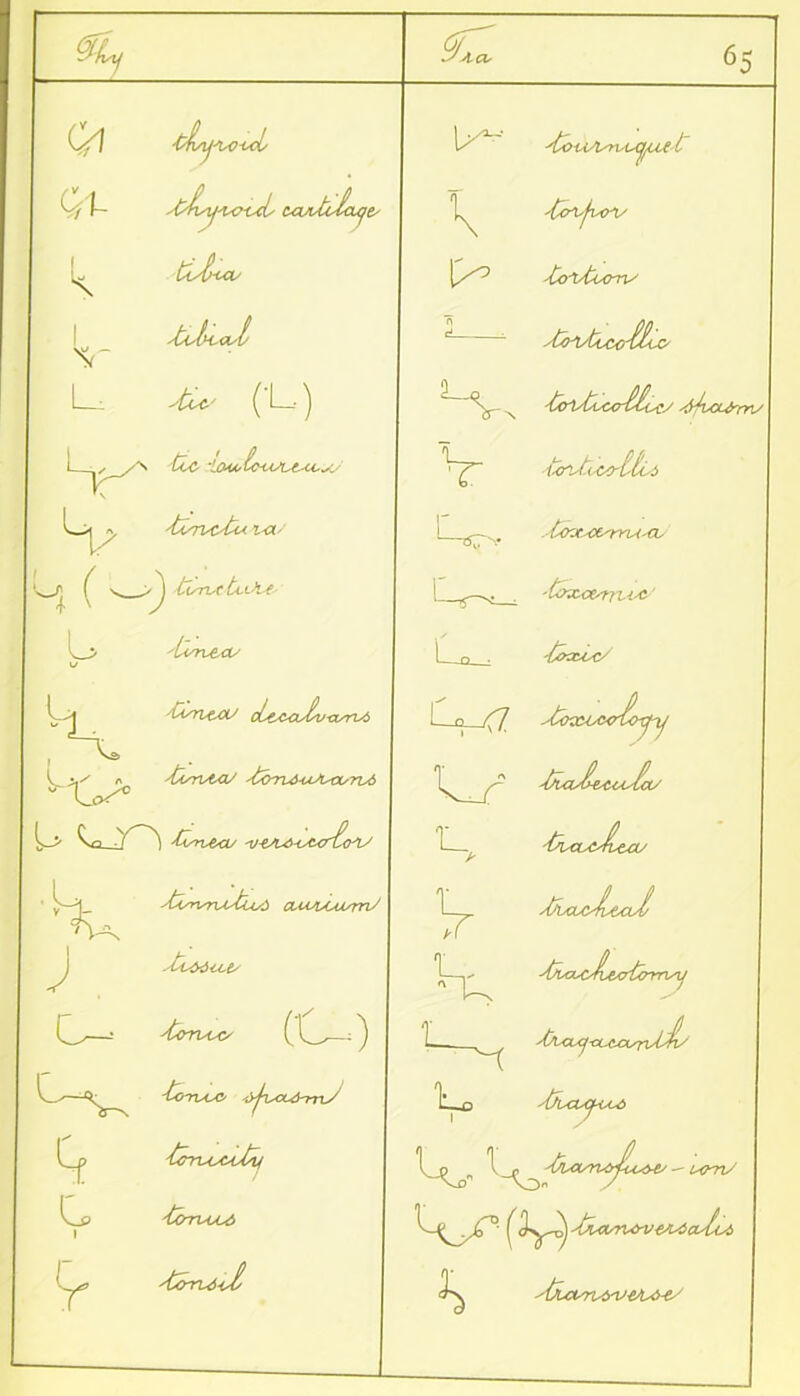 Thy
thyroid
thyroid cartilage
tibia
tibial
tic
tic douloureux
tinctura
tincture
tinea
tinea decalvans
tinea tonsurans
tinea versicolor
tinnitus aurium
tissue
tonic
tonic spasm
tonicity
tonus
tonsil
Tra 65
tourniquet
torpor
torsion
torticollic
torticollic spasm
torticollis
toxaemia
toxaemic
toxic
toxicology
trabecula
trachea
tracheal
tracheotomy
tragacanth
tragus
transfuse - ion
transversalis
transverse